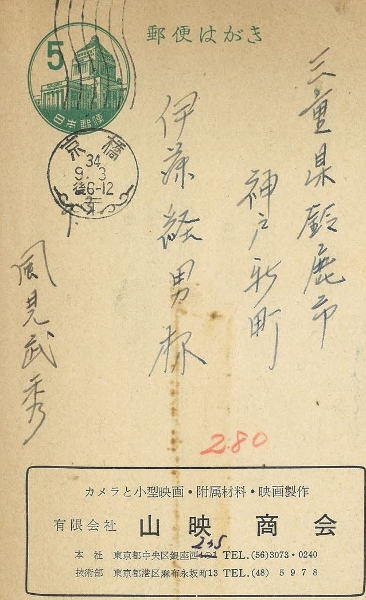 郵便はがき
5
日本郵便
京橋
34
9. 3
後6-12
三重県鈴鹿市
神戸新町
伊藤経男様
風見武秀
280
カメラと小型映画・附属材料・映画製作
有限会社 山映商会
本社 東京都中央区銀座四 TEL.(56)3073・0240
技術部 東京都港区麻布永坂町13 TEL.(48) 5978